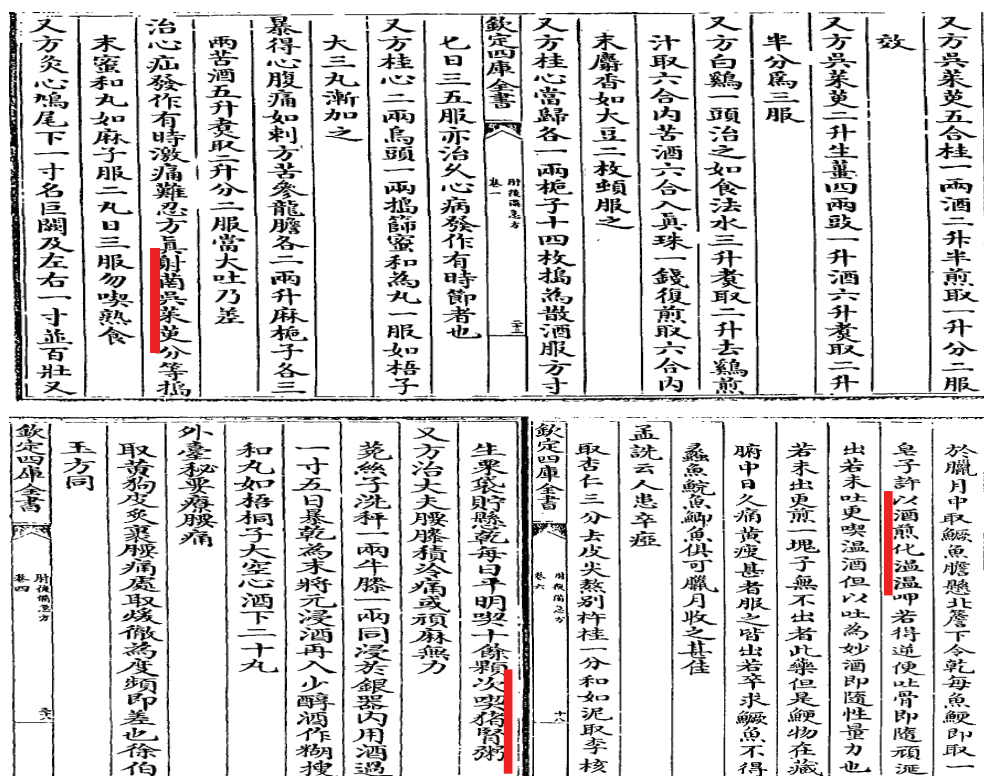 又方吳茱萸五合桂一兩酒二升半煎取一升分二服
效
又方吳茱萸二升生薑四兩豉一升酒六升煑取二升
半分爲三服
又方白鷄一頭治之如食法水三升煑取二升去鷄煎
汁取六合内苦酒六合入真珠一錢復煎取六合内
末麝香如大豆二枚頓服之
又方桂心當歸各一兩梔子十四枚搗為散酒服方寸
欽定四庫全書
肘後備急方
卷一
二十三
匕日三五服亦治久心病發作有時節者也
又方桂心二兩烏頭一兩搗篩蜜和為丸一服如梧子
大三丸漸加之
暴得心腹痛如刺方苦參龍膽各二兩升麻梔子各三
兩苦酒五升煑取二升分二服當大吐乃差
治心疝發作有時激痛難忍方真射菵吳茱萸分等搗
末蜜和丸如麻子服二丸日三服勿喫熟食
又方灸心鳩尾下一寸名巨闕及左右一寸並百壯又
於臘月中取鱖魚膽懸北簷下令乾每魚鯁即取一
皂子許以酒煎化溫溫呷若得逆便吐骨即隨頑涎
出若未吐更喫溫酒但以吐為妙酒即隨性量力也
若未出更煎一塊子無不出者此藥但是鯁物在藏
腑中日久痛黃瘦甚者服之皆出若卒求鱖魚不得
蠡魚鯇魚鯽魚俱可臘月收之甚佳
孟詵云人患卒瘂
取杏仁三分去皮尖熬别杵桂一分和如泥取李核
欽定四庫全書
肘後備急方
卷六
十八
生栗袋貯懸乾每日平明喫十餘顆次喫猪腎粥
又方治丈夫腰膝積冷痛或頑麻無力
菟絲子洗秤一兩牛膝一兩同浸於銀器内用酒過
一寸五日暴乾為末將元浸酒再入少醇酒作糊搜
和丸如梧桐子大空心酒下二十丸
外臺秘要療腰痛
取黃狗皮炙裹腰痛處取煖徹為度頻即差也徐伯
玉方同
欽定四庫全書
肘後備急方
卷四